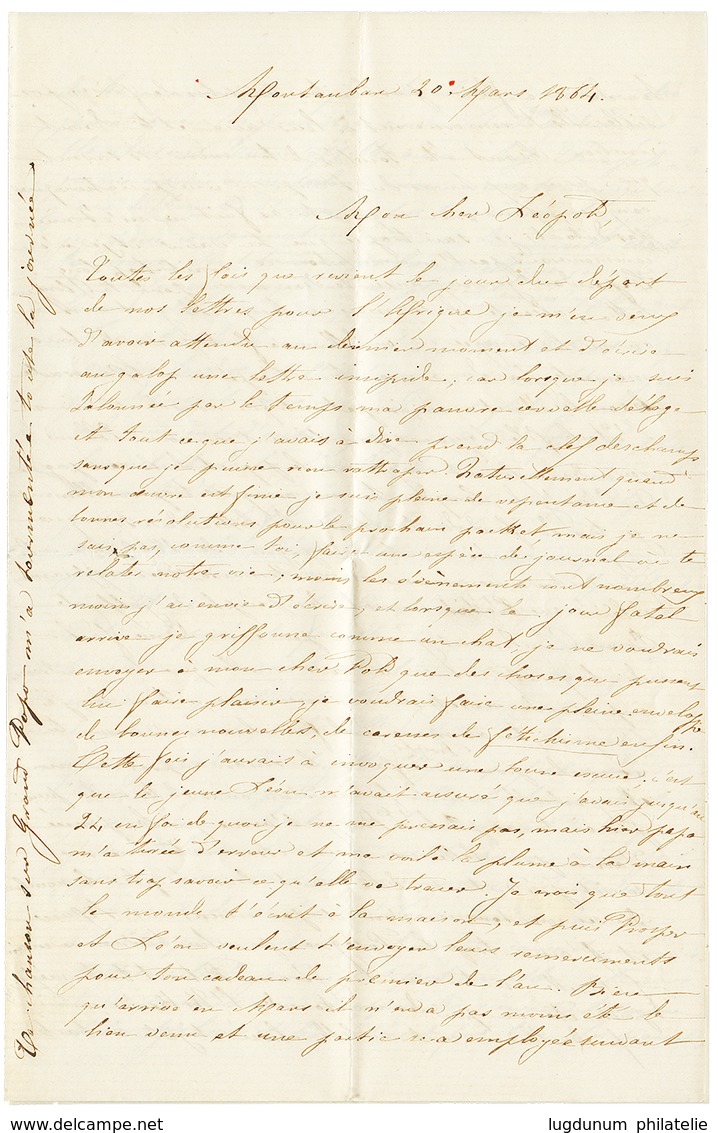 Montauban 20 Mars 1864.
Mon cher Léopold,
Toutes les fois que revient le jour du départ
de nos lettres pour l'Afrique je m'en veux
d'avoir attendu au dernier moment et d'écrire
au galop une lettre insipide, car lorsque je suis
talonnée par le temps ma pauvre cervelle déloge
et tout ce que j'avais à dire prend la clef des champs
sans que je puisse rien rattraper. Naturellement quand
mon œuvre est finie je suis pleine de repentance et de
bonnes résolutions pour le prochain packet mais je ne
sais pas, comme toi, faire une espèce de journal où te
relater notre vie ; moins les évènements sont nombreux
moins j'ai envie d'écrire, et lorsque le jour fatal
arrive je griffonne comme un chat, je ne voudrais
envoyer à mon cher Pold que des choses qui puissent
lui faire plaisir, je voudrais faire une pleine enveloppe
de bonnes nouvelles, de caresses de fétichisme enfin.
Cette fois j'aurais à invoquer une bonne excuse, c'est
que le jeune Léon m'avait assuré que j'avais jusqu'au
24, en foi de quoi je ne me pressais pas, mais hier papa
m'a tirée d'erreur et me voilà la plume à la main
sans trop savoir ce qu'elle va tracer. Je crois que tout
le monde t'écrit à la maison, et puis Prosper
et Léon veulent t'envoyer leurs remerciments
pour ton cadeau de premier de l'an. Bien
qu'arrivé en Mars il n'en a pas moins été le
bien venu et une partie sera employée suivant
Ta chanson sur Grand Popo m'a tourmentée toute la journée
lugdunum philatelie